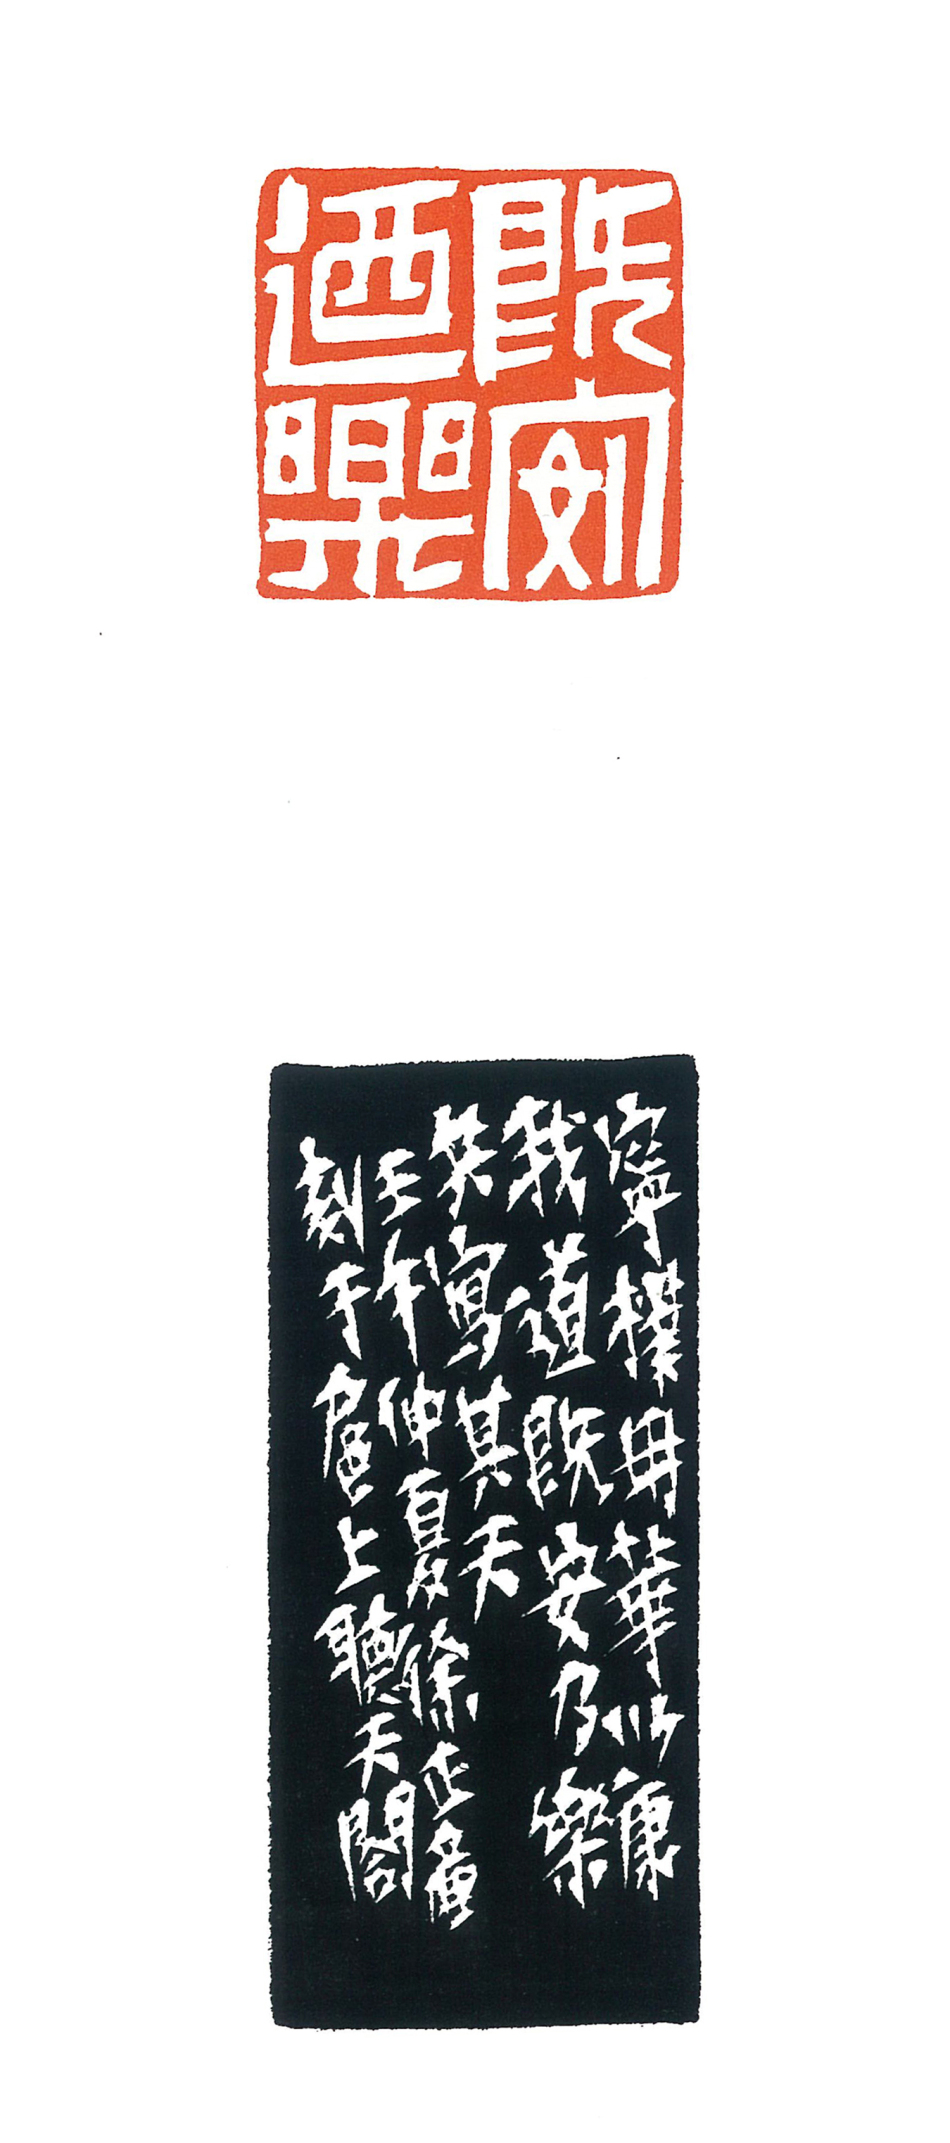 既安
迺樂
寧樸毋華以康
我道既安乃樂
寫其天
壬午仲夏徐正廉
刻于扈上聽天閣